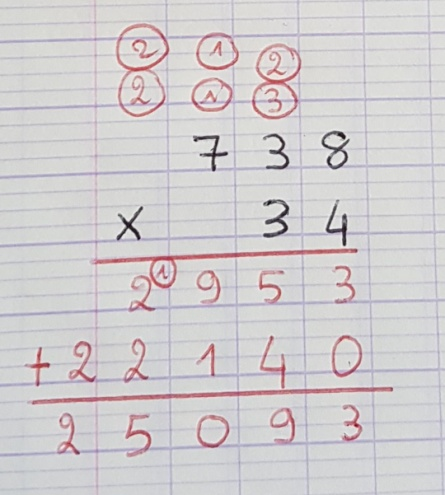 2 1 2
2 1 3
7 3 8
x 3 4
2 1 9 5 3
+ 2 2 1 4 0
2 5 0 9 3